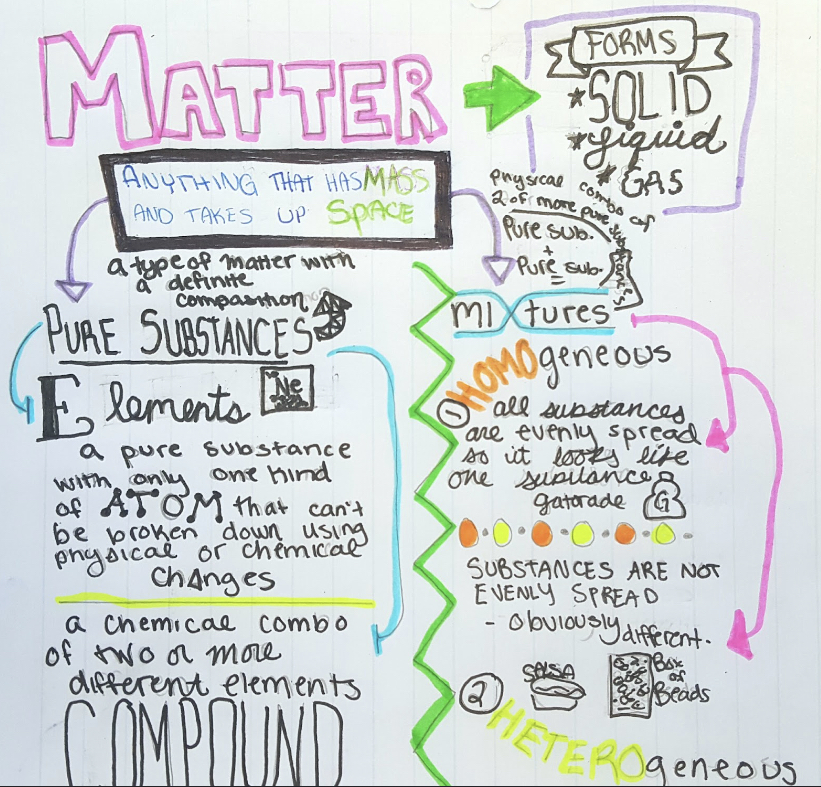 MATTER
FORMS
*SOLID
*Liquid
*GAS
ANYTHING THAT HAS MASS
AND TAKES UP SPACE
a type of matter with
a definite
composition
PURE SUBSTANCES
Elements
Ne
a pure substance
with only one kind
of ATOM that can't
be broken down using
physical or chemical
changes
a chemical combo
of two or more
different elements
COMPOUND
physical combo of
2 of more pure
Pure sub.
+
Pure sub.
=
mixtures
HOMOgeneous
1 all substances
are evenly spread
so it looks like
one substance
gatorade
G
SUBSTANCES ARE NOT
EVENLY SPREAD
- Obviously different.
2
SALSA
Box
of
Beads
HETEROgeneous